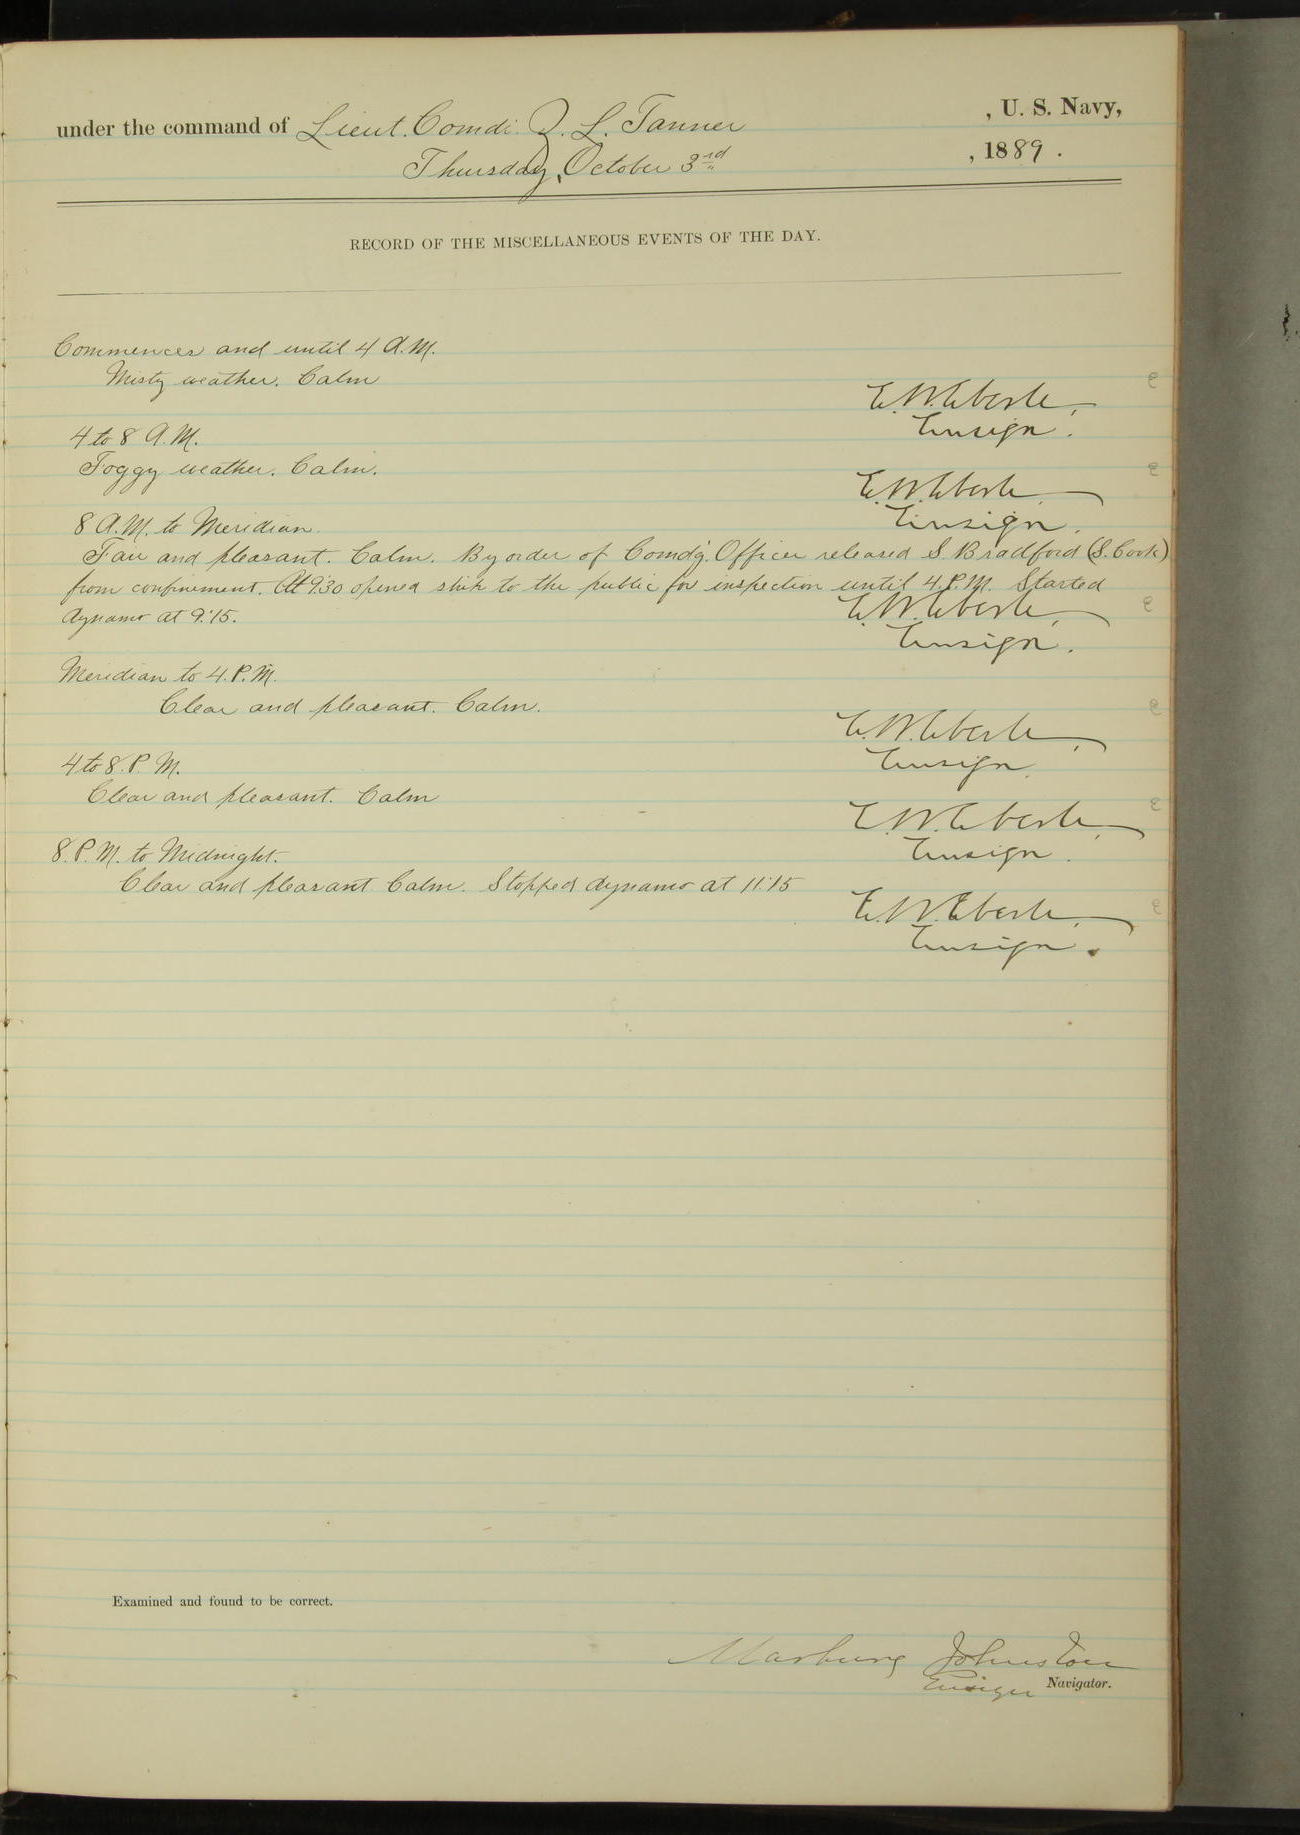 under the command of Lieut. Comdr. Z. L. Tanner , U. S. Navy,
Thursday, October 3rd , 1889 .
RECORD OF THE MISCELLANEOUS EVENTS OF THE DAY.
Commences and until 4 A.M.
Misty weather. Calm
E. W. Eberle,
Ensign.
4 to 8 A.M.
Foggy weather. Calm.
E. W. Eberle,
Ensign.
8 A.M. to Meridian.
Fair and pleasant. Calm. By order of Comd'g. Officer released S. Bradford (S. Cook)
from confinement. At 9:30 opened ship to the public for inspection until 4 P.M. Started
dynamo at 9:15.
E. W. Eberle,
Ensign.
Meridian to 4. P.M.
Clear and pleasant. Calm.
E. W. Eberle,
Ensign.
4 to 8. P. M.
Clear and pleasant. Calm
E. W. Eberle,
Ensign.
8. P. M. to Midnight.
Clear and pleasant. Calm. Stopped dynamo at 11:15
E. W. Eberle,
Ensign.
Examined and found to be correct.
Marbury Johnston
Ensign Navigator.